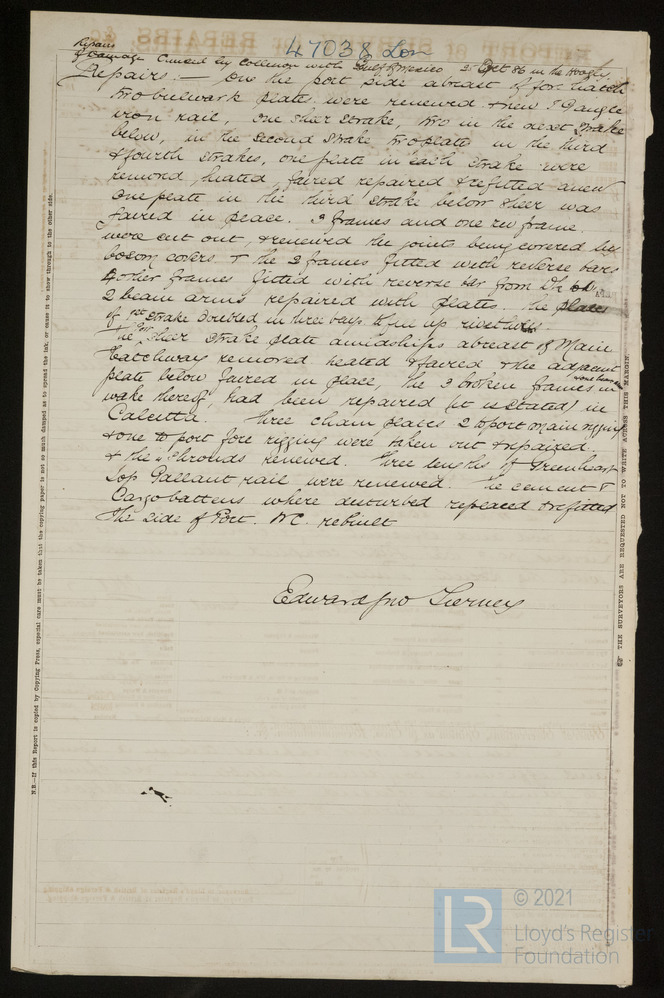 47038 Lon
Repairs
of Damage Caused by Collision with Gulf of Mexico 2 Oct 86 in the Hoogly.
Repairs :— On the port side abreast of fore hatch
two bulwark plates were renewed & new angle
iron rail, one sheer strake, two in the next strake
below, in the second strake two plates in the third
& fourth strakes, one plate in each strake were
removed, heated, faired repaired & refitted anew
One plate in the third strake below sheer was
faired in peace. 3 frames and one rev frame
were cut out, & renewed the joints being covered by
bosom covers & the 2 frames fitted with reverse bars
4 other frames fitted with reverse bar from
2 beam arms repaired with plates. The plates
of 1st strake doubled in three bays to fill up
The Port sheer strake plate amidships abreast of Main
hatchway removed heated & faired & the adjacent
plate below faired in place, the 3 broken frames in
wake thereof, had been repaired (it is stated) in
Calcutta. Three chain plates 2 to port main rigging
& one to port fore rigging were taken out & repaired.
& the shrouds renewed. Three lengths of Greenheart
Top Gallant rail were renewed. The cement &
Cargo battens where disturbed replaced & refitted
The side of Port. WC. rebuilt
Edward Jno Tierney
N.B.—If this Report is copied by Copying Press, especial care must be taken that the copying paper is not so much damped as to spread the ink, or cause it to show through to the other side.
THE SURVEYORS ARE REQUESTED NOT TO WRITE ACROSS THIS MARGIN.
LR
© 2021
Lloyd's Register
Foundation